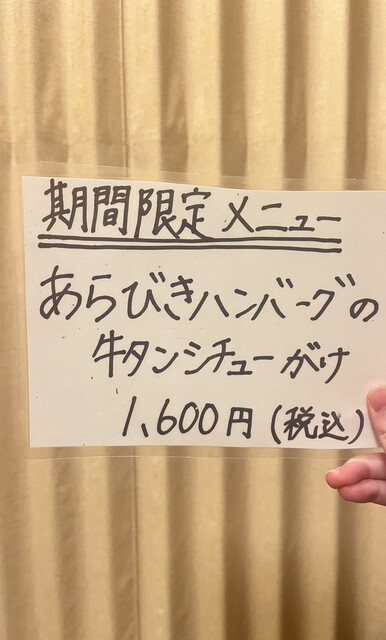 期間限定メニュー
あらびきハンバーグの
牛タンシチューがけ
1,600円(税込)